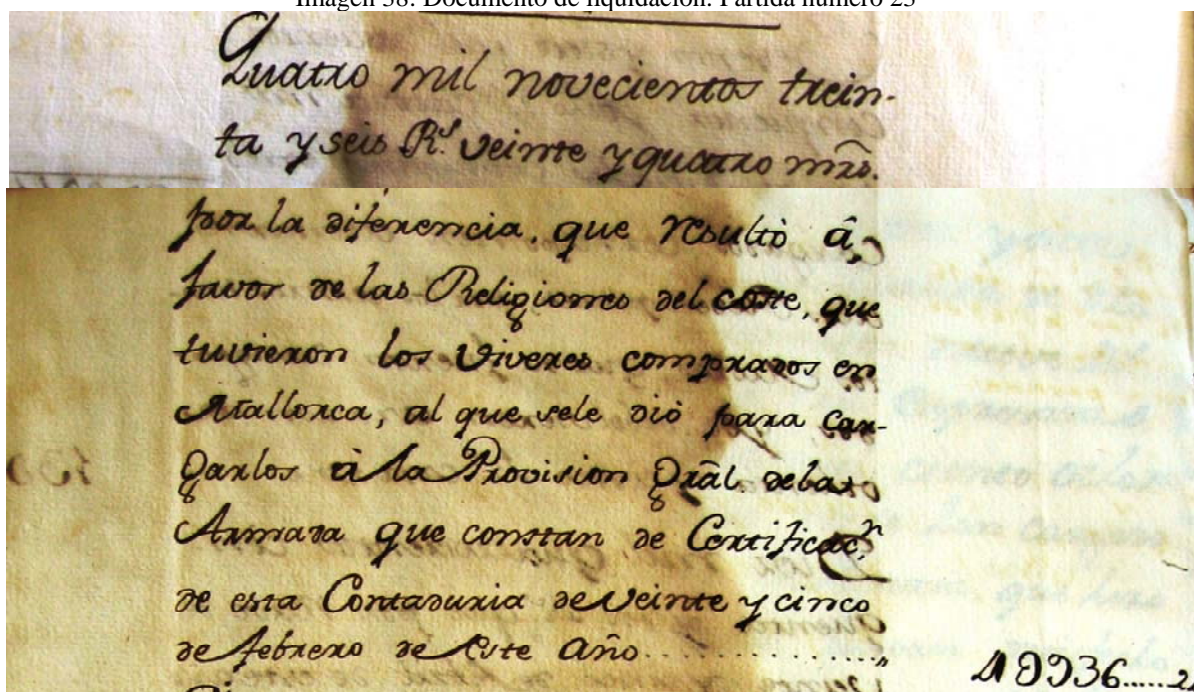 Imagen 38. Documento de liquidación. Partida número 23
Quatro mil novecientos trein-
ta y seis R.s veinte y quatro mrs.
por la diferencia, que resultò â
favor de las Religiones del coste, que
tuvieron los viveres comprados en
Mallorca, al que sele diò para car-
garlos à la Provision Gral. de la
Armada que constan de Certificac.n
de esta Contaduria de veinte y cinco
de febrero de este año..............
4 9936......2